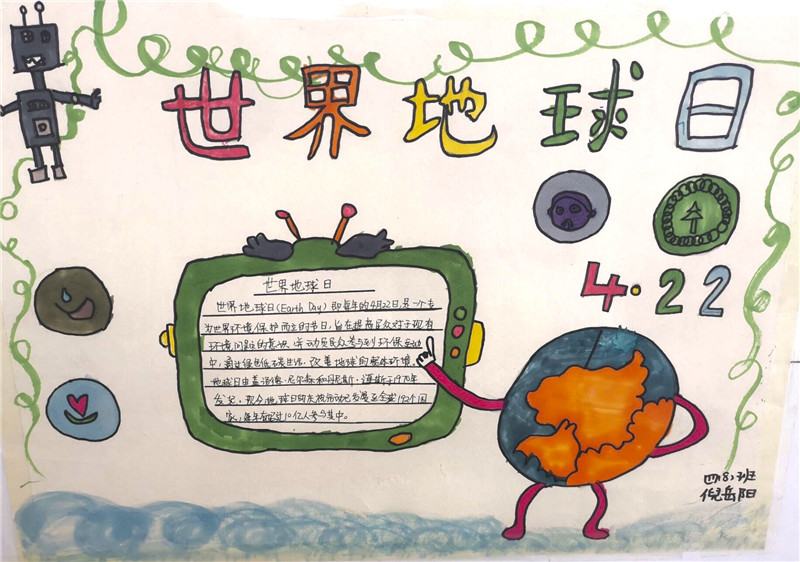 世界地球日
4.22
世界地球日
世界地球日(Earth Day)即每年的4月22日,是一个专
为世界环境保护而设的节日,旨在提高民众对于现有
环境问题的意识,并动员民众参与到环保运动
中,通过绿色低碳生活,改善地球的整体环境。
地球日由盖洛德·尼尔森和丹尼斯·海斯于1970年
发起。现今,地球日的庆祝活动已发展至全球192个国
家,每年有超过10亿人参与其中。
四(8)班
倪岳阳